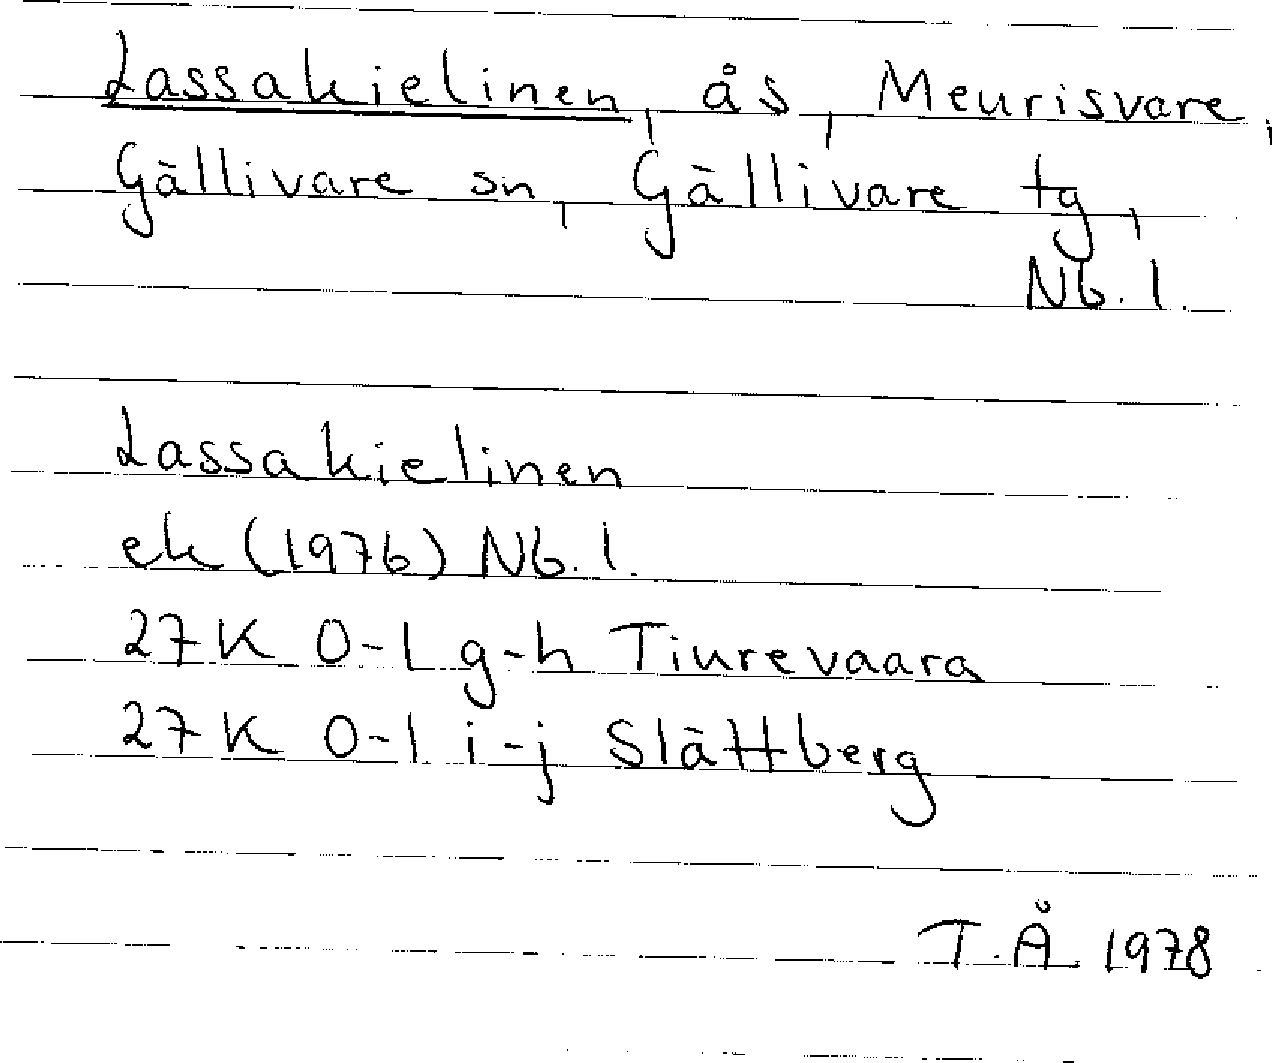 Lassakielinen, ås, Meurisvare,
Gällivare sn, Gällivare tg,
Nb. l.
Lassakielinen
ek (1976) Nb. l.
27 K 0-1 g-h Tiurevaara
27 K 0-1 i-j Slättberg
T. Å 1978